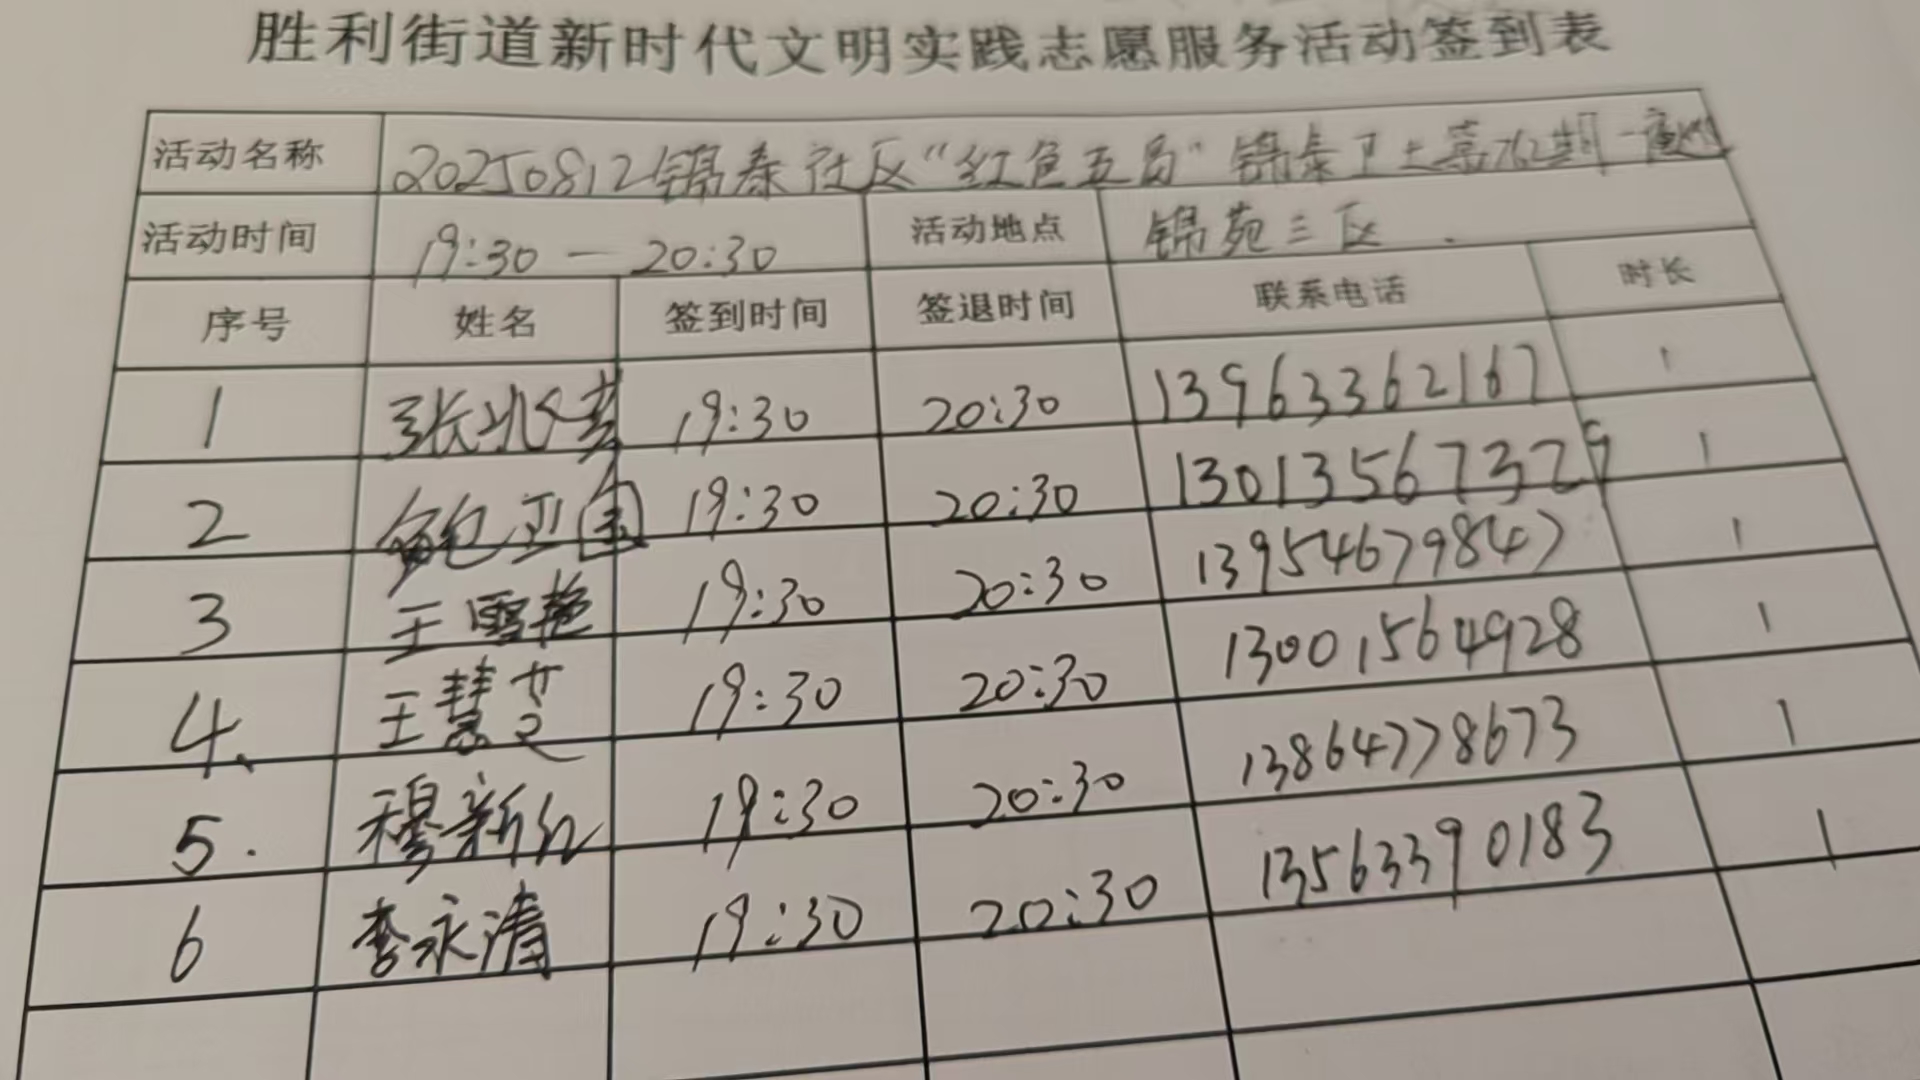 胜利街道新时代文明实践志愿服务活动签到表
活动名称 20250812锦泰社区“红色五局”锦泰卫士第 期
活动时间 19:30 — 20:30 活动地点 锦苑三区
序号 姓名 签到时间 签退时间 联系电话 时长
1 张 19:30 20:30 13963362167 1
2 鲍卫国 19:30 20:30 13013567379 1
3 王雪艳 19:30 20:30 13954679847 1
4. 王慧芝 19:30 20:30 13001564928 1
5. 穆新红 19:30 20:30 13864778673 1
6 李永清 19:30 20:30 13563390183 1